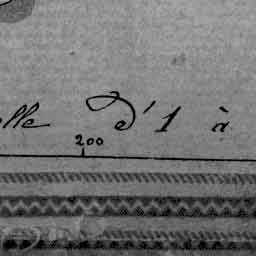 elle d'1 à
200